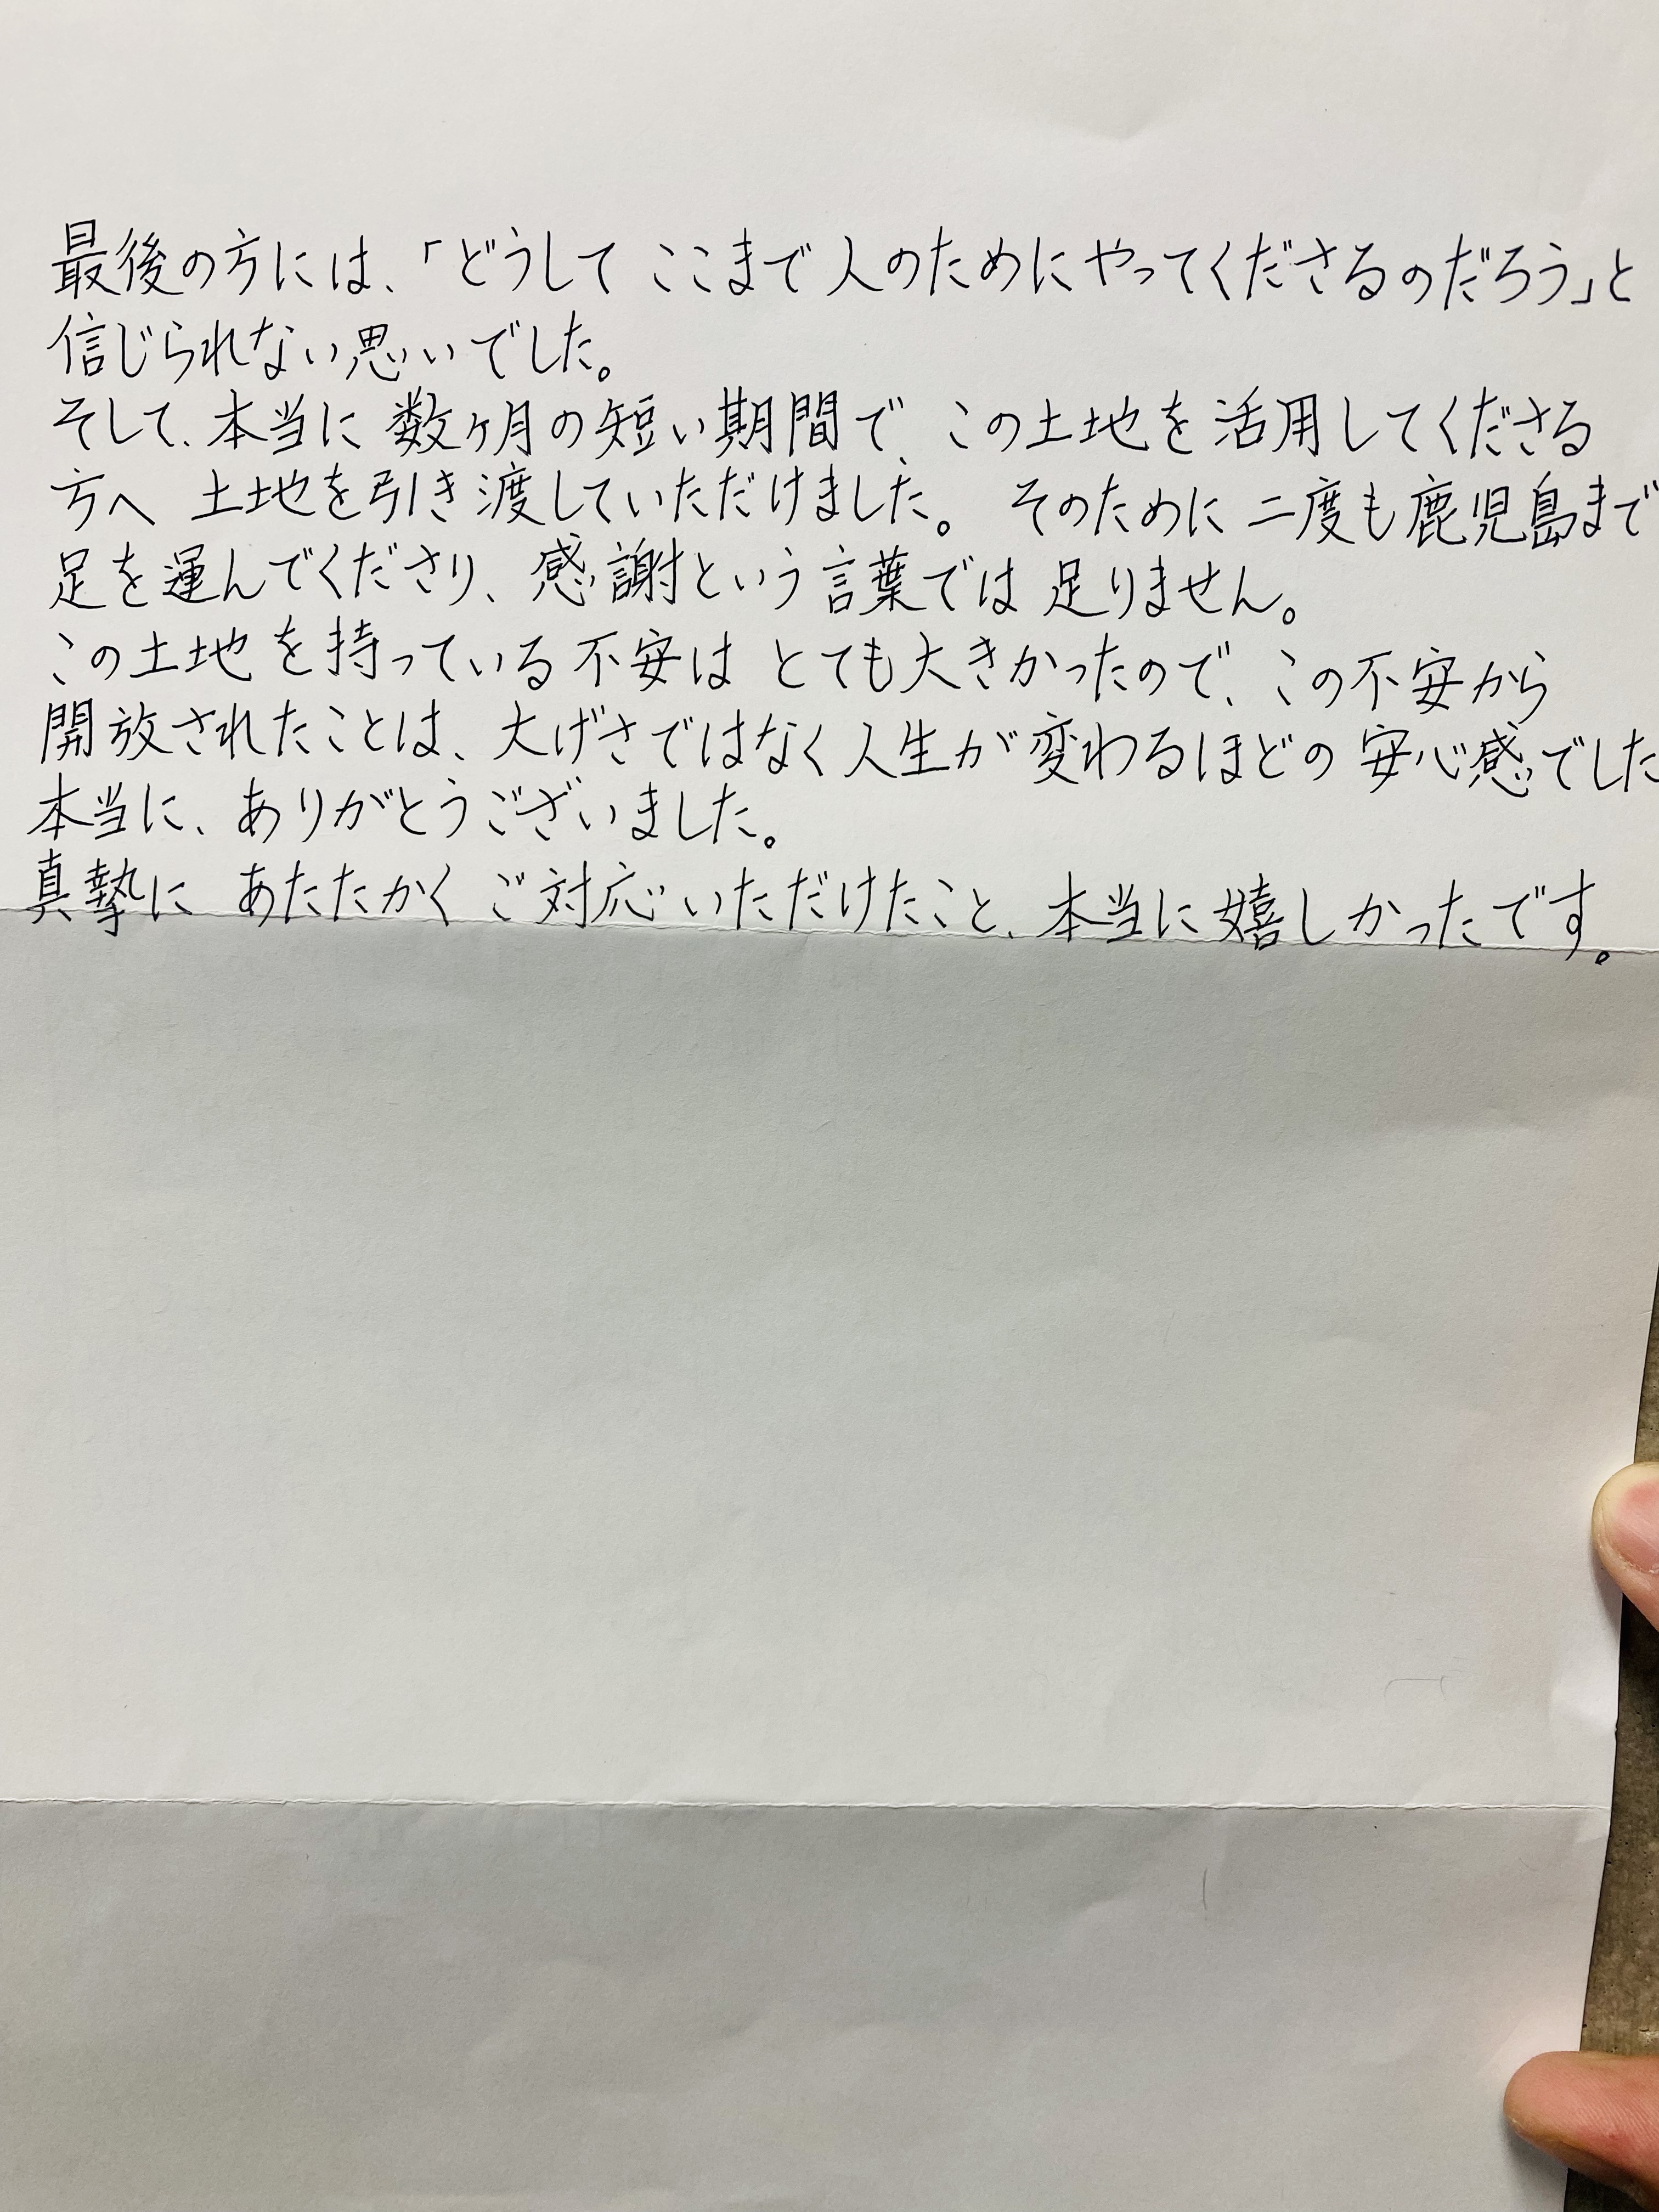 最後の方には、「どうして ここまで 人のためにやってくださるのだろう」と
信じられない思いでした。
そして、本当に 数ヶ月の短い期間で、この土地を活用してくださる
方へ 土地を引き渡していただけました。 そのために 二度も鹿児島まで
足を運んでくださり、感謝という言葉では 足りません。
この土地を持っている不安は とても大きかったので、この不安から
開放されたことは、大げさではなく人生が変わるほどの 安心感でした
本当に、ありがとうございました。
真摯に あたたかく ご対応いただけたこと、本当に嬉しかったです。